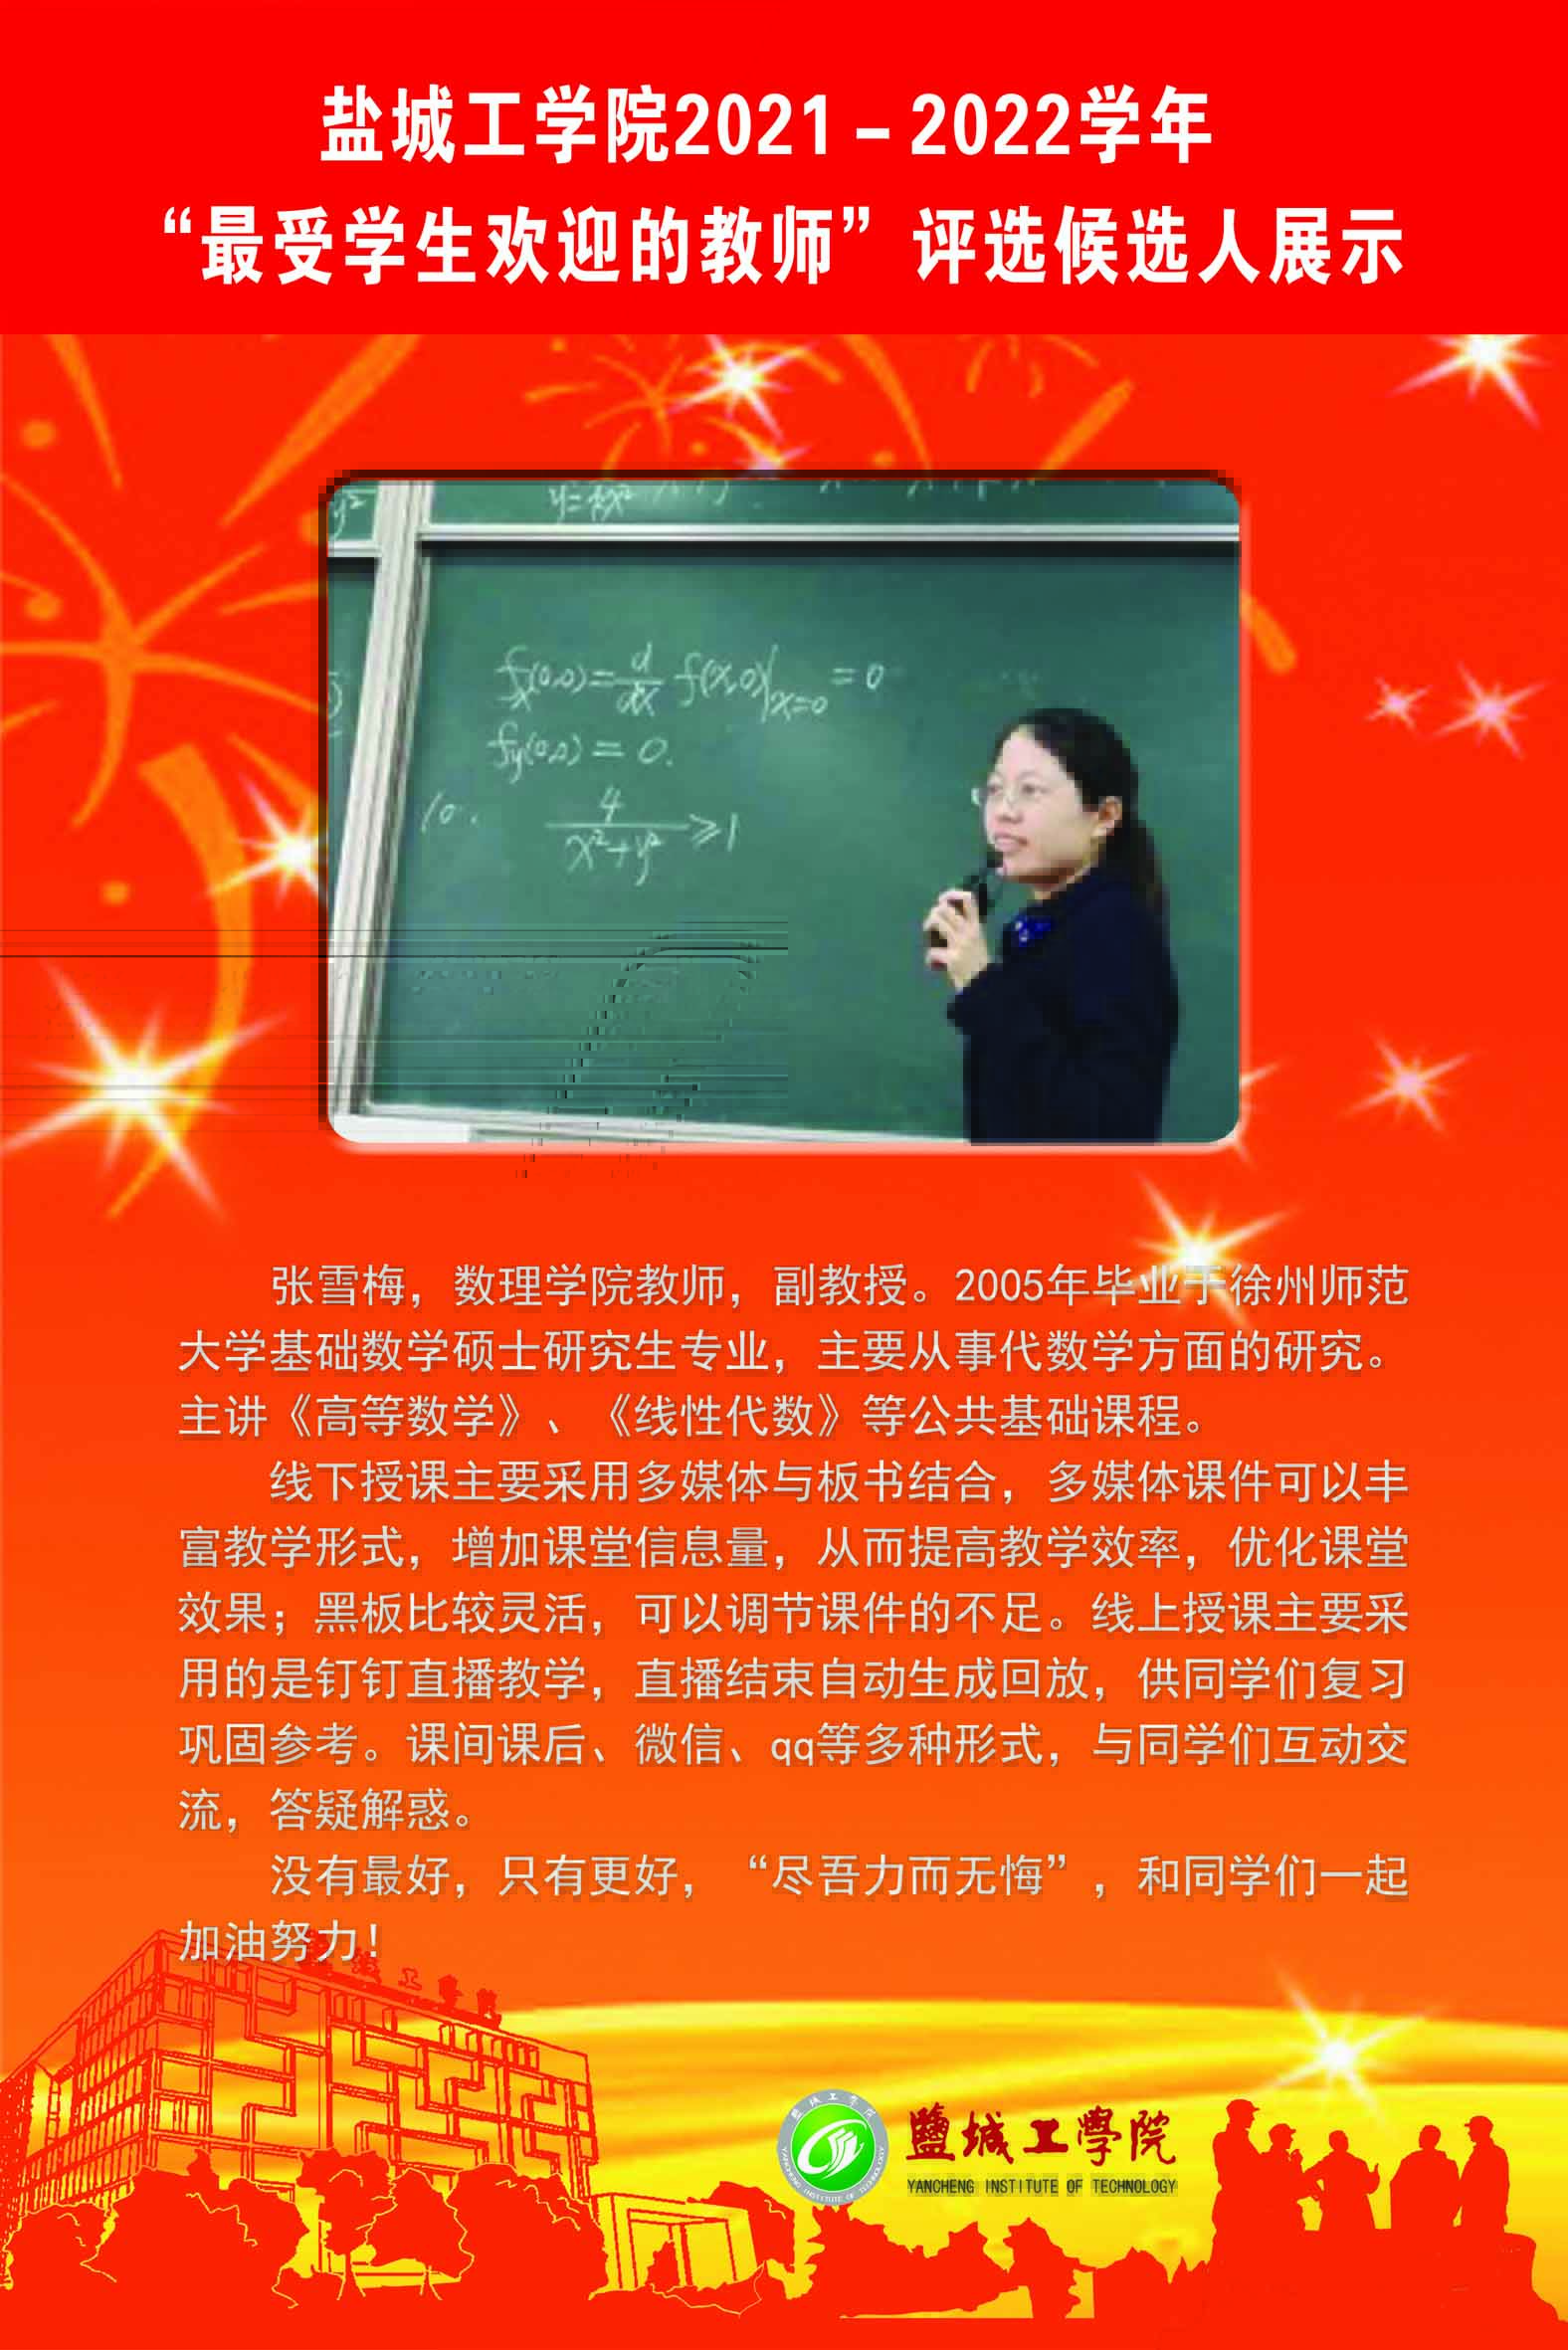 盐城工学院2021－2022学年
“最受学生欢迎的教师”评选候选人展示
y²
y=kx²
fx(0,0)=d/dx f(x,0)|x=0 =0
fy(0,0)=0.
10. 4/(x²+y²)≥1
张雪梅，数理学院教师，副教授。2005年毕业于徐州师范
大学基础数学硕士研究生专业，主要从事代数学方面的研究。
主讲《高等数学》、《线性代数》等公共基础课程。
线下授课主要采用多媒体与板书结合，多媒体课件可以丰
富教学形式，增加课堂信息量，从而提高教学效率，优化课堂
效果；黑板比较灵活，可以调节课件的不足。线上授课主要采
用的是钉钉直播教学，直播结束自动生成回放，供同学们复习
巩固参考。课间课后、微信、qq等多种形式，与同学们互动交
流，答疑解惑。
没有最好，只有更好，“尽吾力而无悔”，和同学们一起
加油努力！
盐城工学院
鹽城工學院
YANCHENG INSTITUTE OF TECHNOLOGY
鹽城工學院
YANCHENG INSTITUTE OF TECHNOLOGY